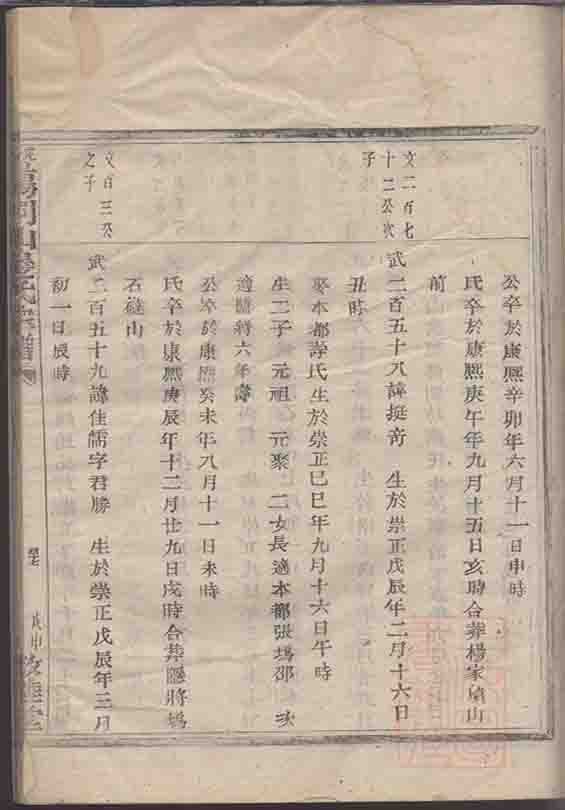 公卒於康熙辛卯年六月十一日申時
氏卒於康熙庚午年九月十五日亥時合葬楊家山
前
文二百七
十二公次
子
武二百五十八諱挺奇 生於崇正戊辰年二月十六日
丑時
娶本都氏生於崇正己巳年九月十六日午時
生二子 元祖 元聚 二女長適本都張塢邵 次
適 六年壽
公卒於康熙癸未年八月十一日未時
氏卒於康熙庚辰年十二月廿九日戌時合葬將塢
石山
文百三公
之子
武二百五十九諱佳儒字君勝 生於崇正戊辰年三月
初一日辰時
氏宗譜
戊申